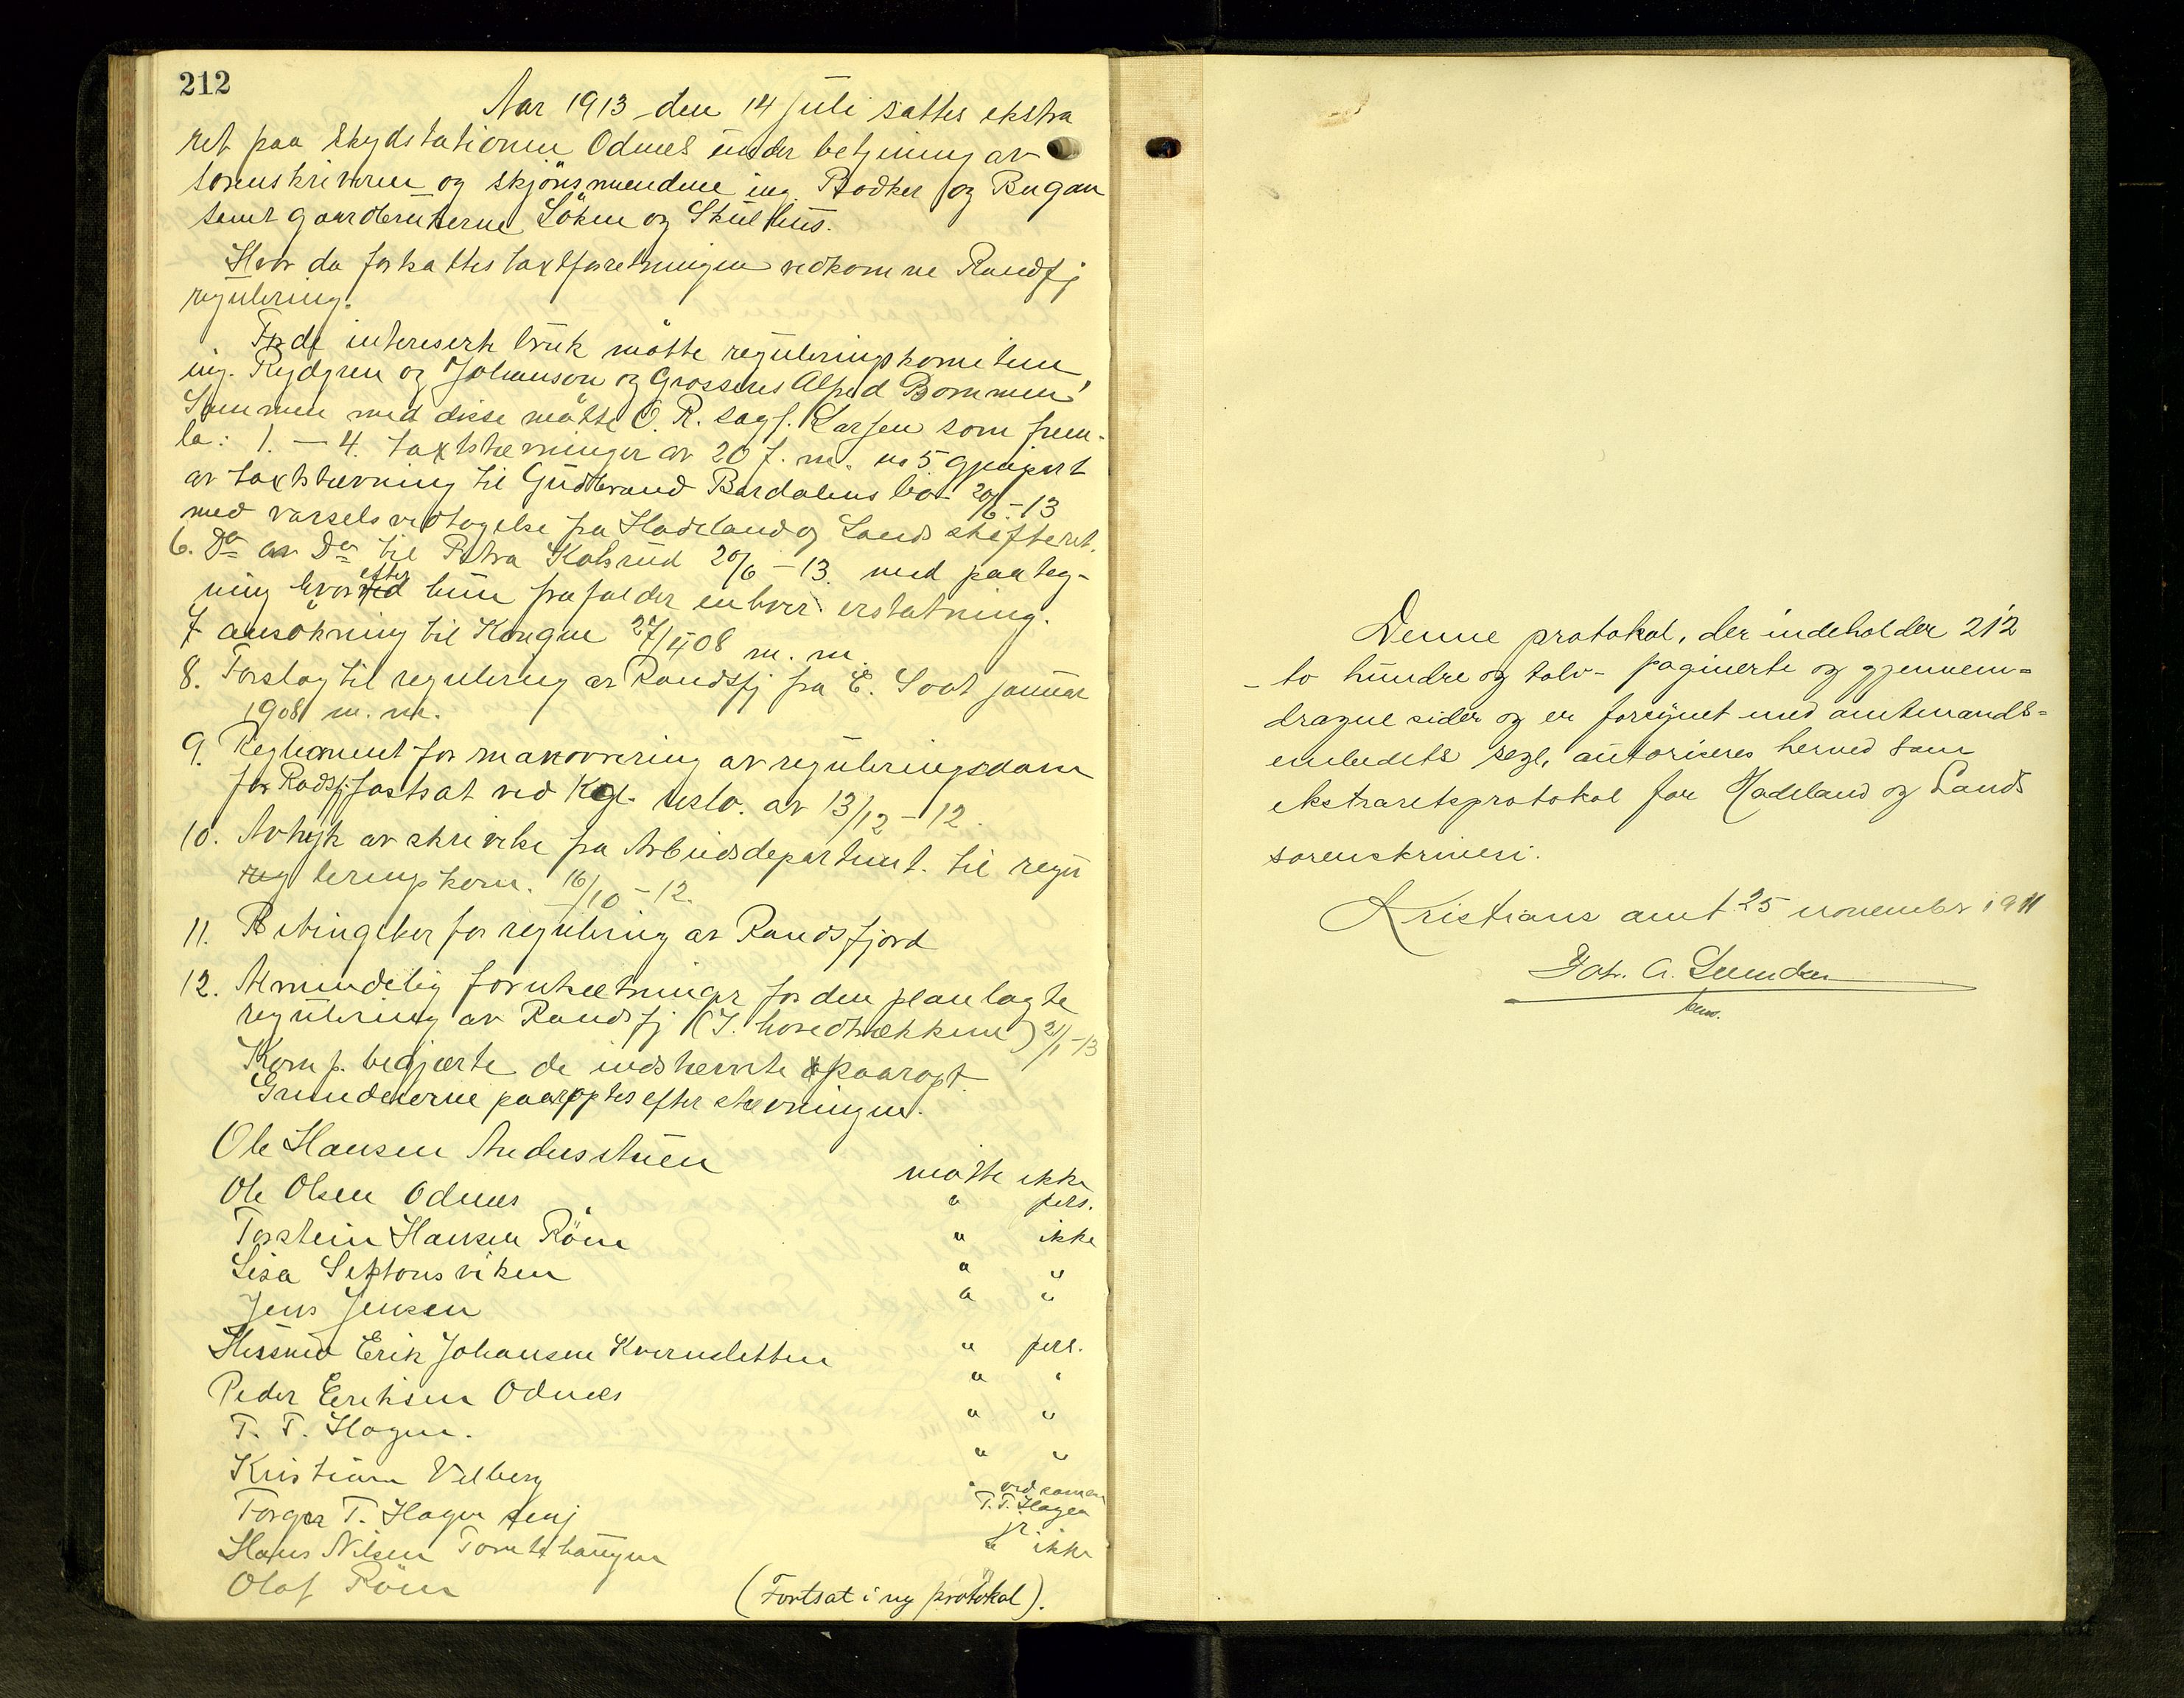 212
Aar 1913 den 14 juli sattes ekstra
ret paa skydstationen Odnes under betjening av
sorenskriveren og skjønsmændene ing. Bødker og Bugan
samt gaardbrukerne Löken og Skülhus.
Hvor da forsattes taxtforretningen vedkomne Randsfj
regulering.
For de interesserte bruk møtte reguleringskomiteen,
ing. Rydgren og Johanson og Grosserer Alfred Bommen.
Sammen med disse møtte O. R. sagf. Larsen som frem-
la: 1. — 4. taxtstævninger av 20 f. m. no 5 gjenpart
av taxtstævning til Gudbrand Bardalens bo 20/6 - 13
med varselsvedtagelse fra Hadeland og Lands skifteret.
6. Do av Do til Petra Kolsrud 20/6 - 13. med paateg-
ning hvorefter hun frafalder enhver erstatning.
7 ansökning til Kongen 27/4 08 m. m.
8. Forslag til regulering av Randsfj fra E. Soot januar
1908 m. m.
9. Reglement for manøvrering av reguleringsdam
for Radsfj. fastsat ved Kgl. reslo. av 13/12 - 12.
10. Avtryk av skrivelse fra Arbeidsdepartemt. til regu
leringskom. 16/10 - 12.
11. Betingelser for regulering av Randsfjord
12. Almindelig forutsetninger for den planlagte
regulering av Randsfj (I. hovedtrækkene) 21/1 - 13
Komp. begjærte de indstevnte paaropt.
Grundeierne paaroptes efter stevningen.
Ole Hansen Andersstuen møtte ikke
Ole Olsen Odnes " pers.
Torstein Hansen Röine " ikke
Lisa Seftonsviken " "
Jens Jensen " "
Husmd Erik Johansen Kvernsletten " pers.
Peder Eriksen Odnes " "
T. T. Hagen. " "
Kristian Velberg " "
Torger T. Hagen senj " ved sønnen T. T. Hagen jr.
Hans Nilsen Tomtehaugen " ikke
Olaf Röine "
(Fortsat i ny protokol).
Denne protokol, der indeholder 212
- to hundre og tolv - paginerte og gjennem-
dragne sider og er forsynet med amtmands-
embedets segl, autoriseres herved som
ekstraretsprotokol for Hadeland og Lands
sorenskriveri.
Kristians amt 25 november 1911
Joh. A.